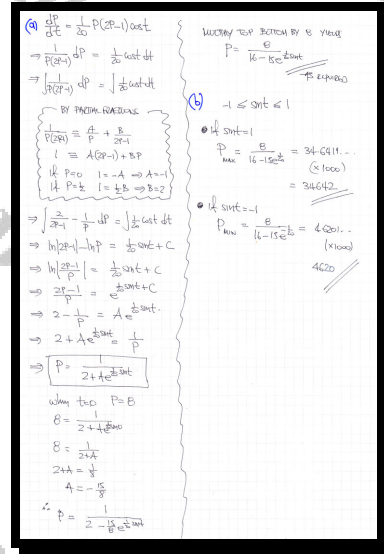 (a) dP/dt = 1/20 P(2P-1) cost
⇒ 1/P(2P-1) dP = 1/20 cost dt
⇒ ∫ 1/P(2P-1) dP = ∫ 1/20 cost dt
BY PARTIAL FRACTIONS
1/P(2P-1) ≡ A/P + B/2P-1
1 ≡ A(2P-1) + BP
If P=0 1=-A ⇒ A=-1
If P=½ 1=½B ⇒ B=2
⇒ ∫ 2/2P-1 - 1/P dP = ∫ 1/20 cost dt
⇒ ln|2P-1| - ln|P| = 1/20 sint + C
⇒ ln|2P-1/P| = 1/20 sint + C
⇒ 2P-1/P = e^(1/20 sint + C)
⇒ 2 - 1/P = Ae^(1/20 sint)
⇒ 2 + Ae^(1/20 sint) = 1/P
⇒ P = 1/(2 + Ae^(1/20 sint))
when t=0 P=8
8 = 1/(2 + Ae^(1/20 sin0))
8 = 1/(2+A)
2+A = 1/8
A = -15/8
∴ P = 1/(2 - 15/8 e^(1/20 sint))
MULTIPLY TOP BOTTOM BY 8 YIELDS
P = 8/(16 - 15e^(1/20 sint))
AS REQUIRED
(b) -1 ≤ sint ≤ 1
• If sint=1
P MAX = 8/(16 - 15e^(1/20)) = 34.6419...
(×1000)
= 34642
• If sint=-1
P MIN = 8/(16 - 15e^(-1/20)) = 4.6201...
(×1000)
4620